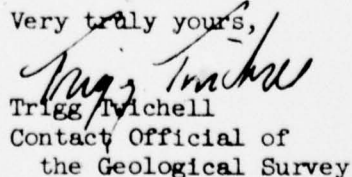 Very truly yours,
Trigg Twichell
Trigg Twichell
Contact Official of
the Geological Survey